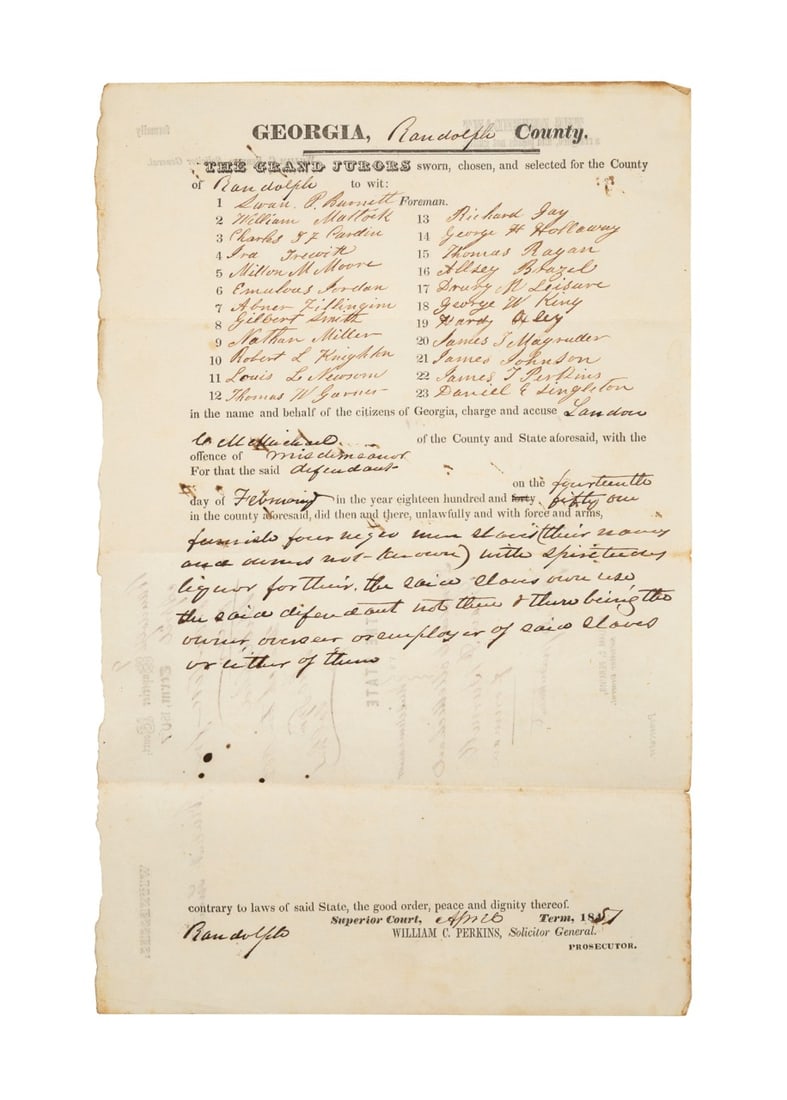 GEORGIA, Randolph County.
THE GRAND JURORS sworn, chosen, and selected for the County
of Randolph to wit:
1 Swan P. Burnett Foreman.
2 William Mattock
3 Charles Cardin
4 Ira Trewith
5 Milton M Moore
6 Emulous Jordan
7 Abner Zillingim
8 Gilbert Smith
9 Nathan Miller
10 Robert L Knighton
11 Louis L Newsom
12 Thomas W Garner
13 Richard Jay
14 George H Hollaway
15 Thomas Ragan
16 Allsey Brazel
17 Drury M Leisure
18 George W King
19 Hardy Exley
20 James T Magruder
21 James Johnson
22 James T Perkins
23 Daniel E Singleton
in the name and behalf of the citizens of Georgia, charge and accuse Landon
C McMichael of the County and State aforesaid, with the
offence of misdemeanor
For that the said defendant
on the fourteenth
day of February in the year eighteen hundred and forty, fifty one
in the county aforesaid, did then and there, unlawfully and with force and arms,
furnish four negro men slaves (their names
and owners not known) with spirituous
liquor for their, the said slaves own use
the said defendant not then & there being the
owner, overseer or employer of said slaves
or either of them
contrary to laws of said State, the good order, peace and dignity thereof.
Superior Court, April Term, 1851
Randolph WILLIAM C. PERKINS, Solicitor General.
PROSECUTOR.